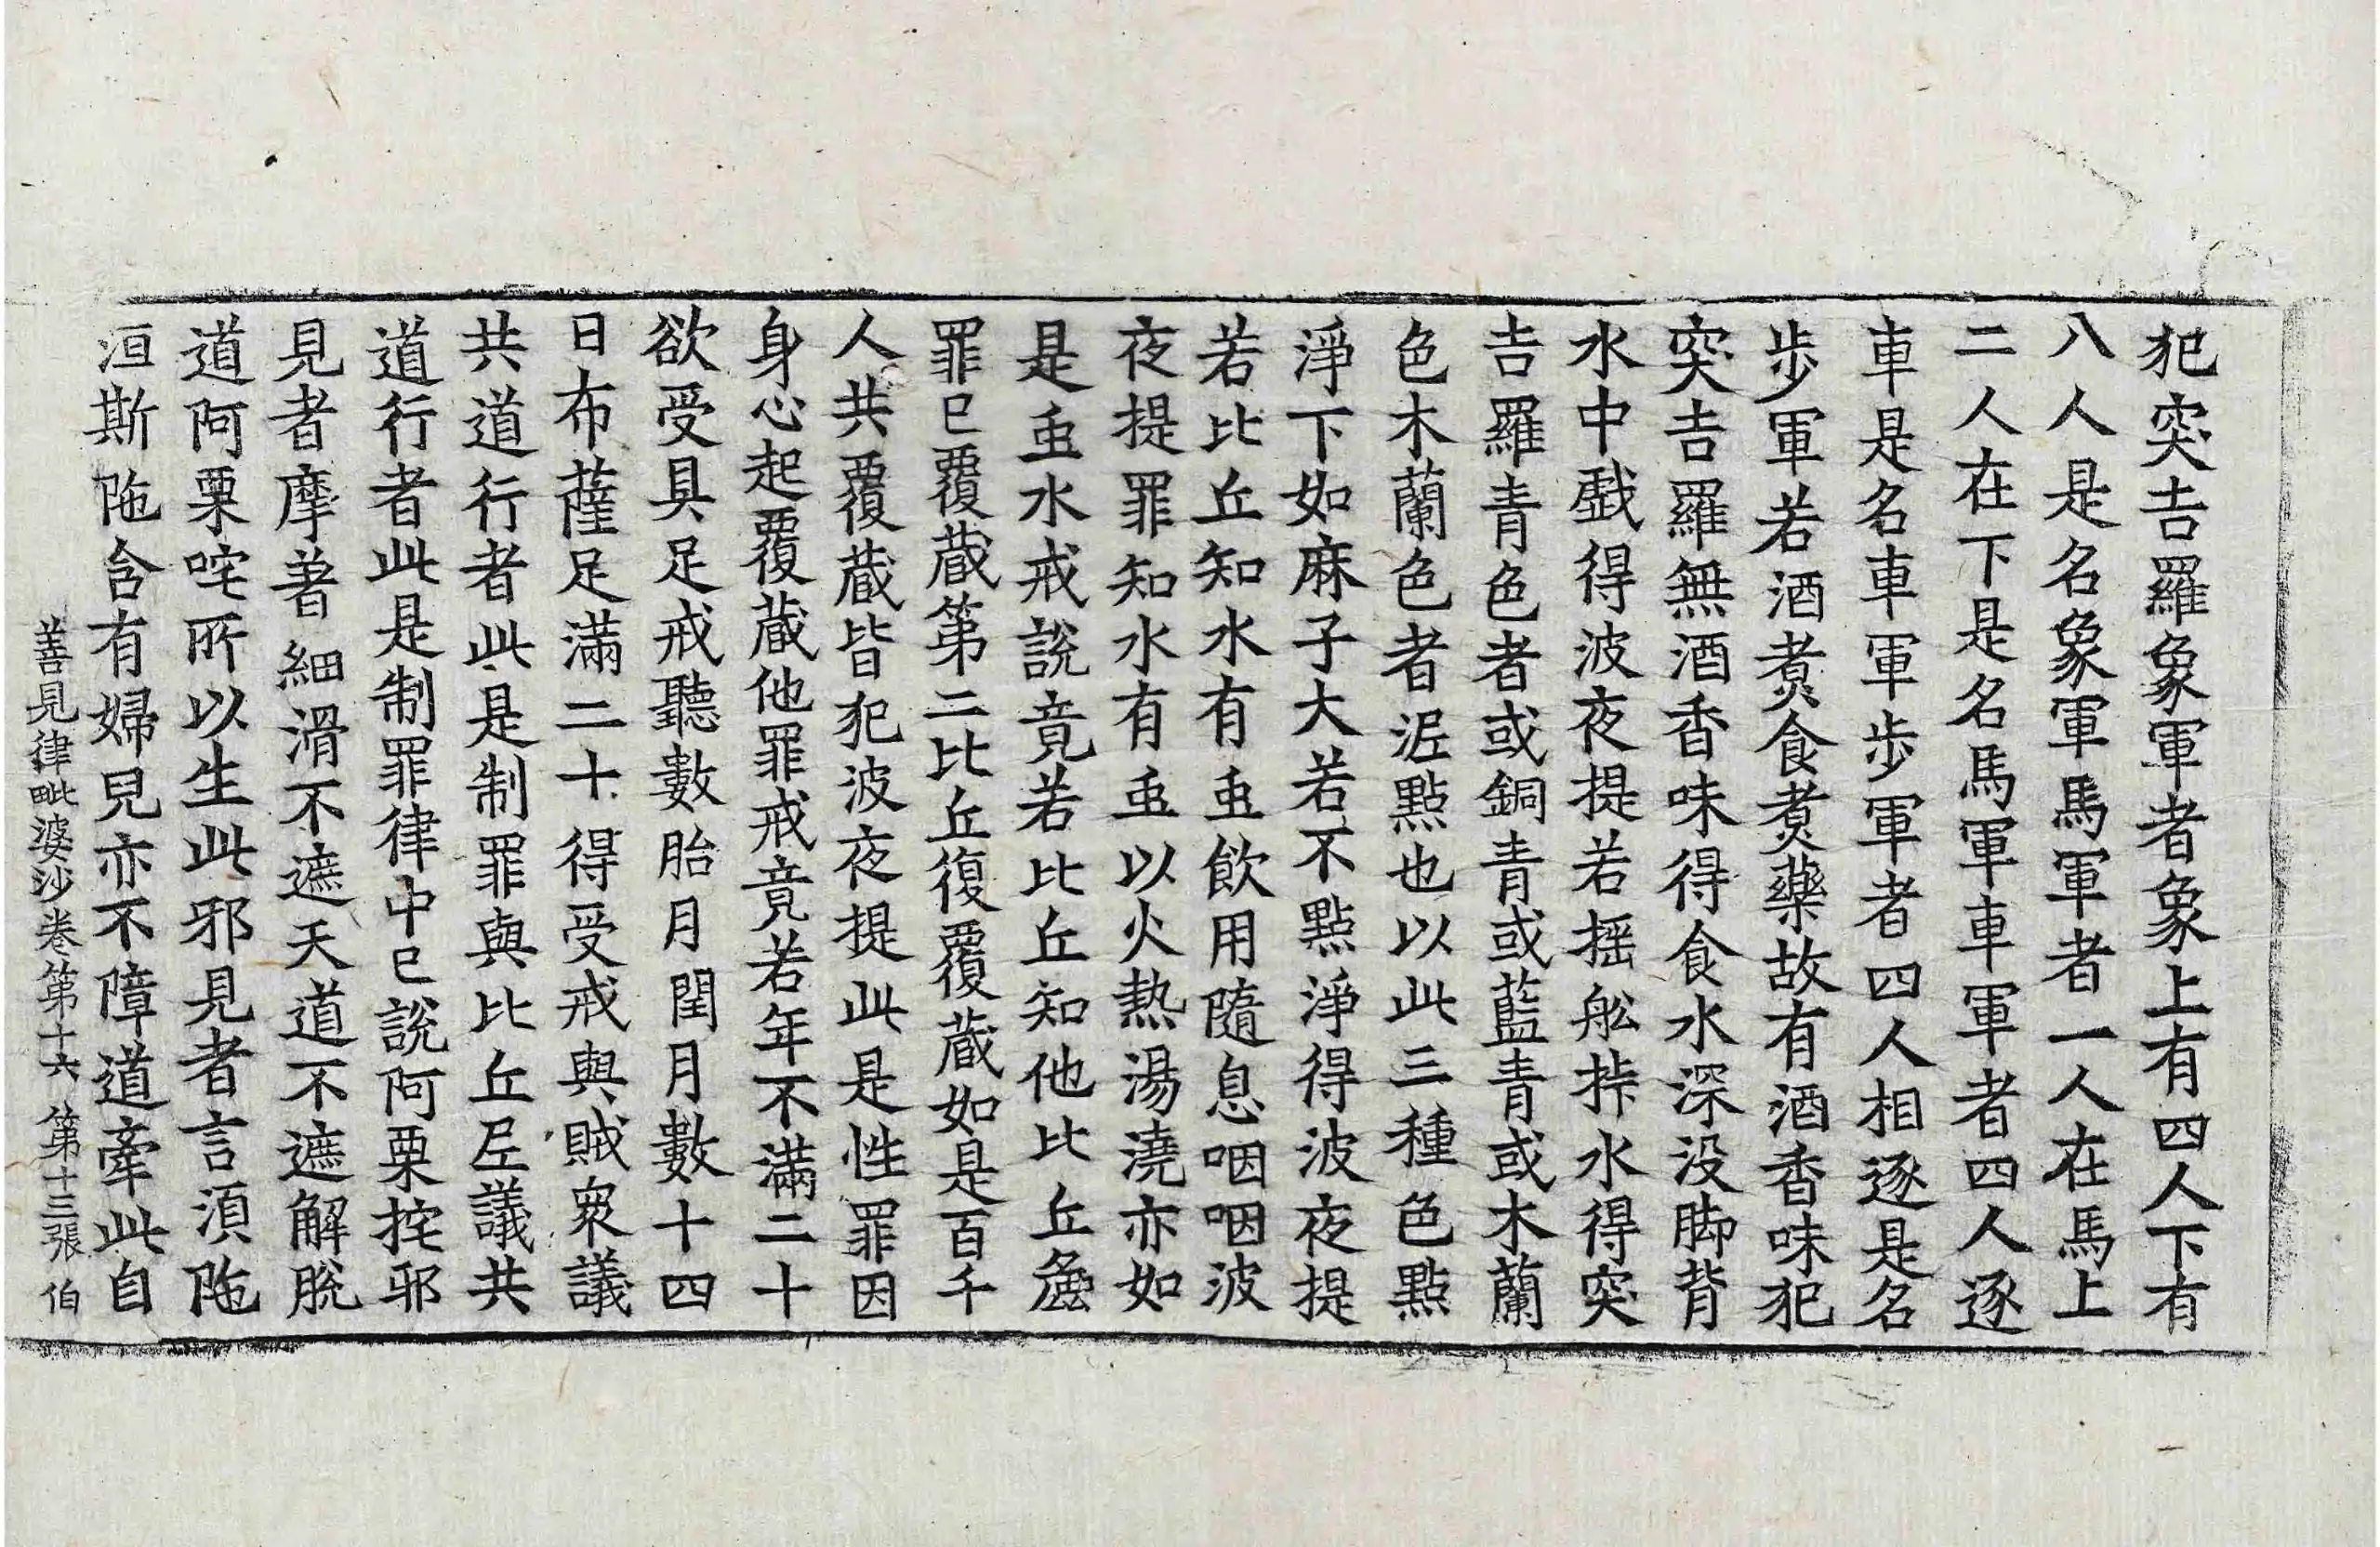 犯突吉羅象軍者象上有四人下有
八人是名象軍馬軍者一人在馬上
二人在下是名馬軍車軍者四人逐
車是名車軍步軍者四人相逐是名
步軍若酒煮食煮藥故有酒香味犯
突吉羅無酒香味得食水深没脚背
水中戱得波夜提若搖舩㧊水得突
吉羅青色者或銅青或藍青或木蘭
色木蘭色者泥㸃也以此三種色㸃
淨下如麻子大若不㸃淨得波夜提
若比丘知水有䖝飮用隨息咽咽波
夜提罪知水有䖝以火熱湯澆亦如
是䖝水戒說竟若比丘知他比丘麁
罪已覆藏第二比丘復覆藏如是百千
人共覆藏皆犯波夜提此是性罪因
身心起覆藏他罪戒竟若年不滿二十
欲受具足戒聽數胎月閏月數十四
日布薩足滿二十得受戒與賊衆議
共道行者此是制罪與比丘尼議共
道行者此是制罪律中已說阿栗挓邪
見者摩著細滑不遮天道不遮解脫
道阿栗咤所以生此邪見者言須陁
洹斯陁含有婦兒亦不障道牽此自
善見律毗婆沙卷第十六 第十三張 伯